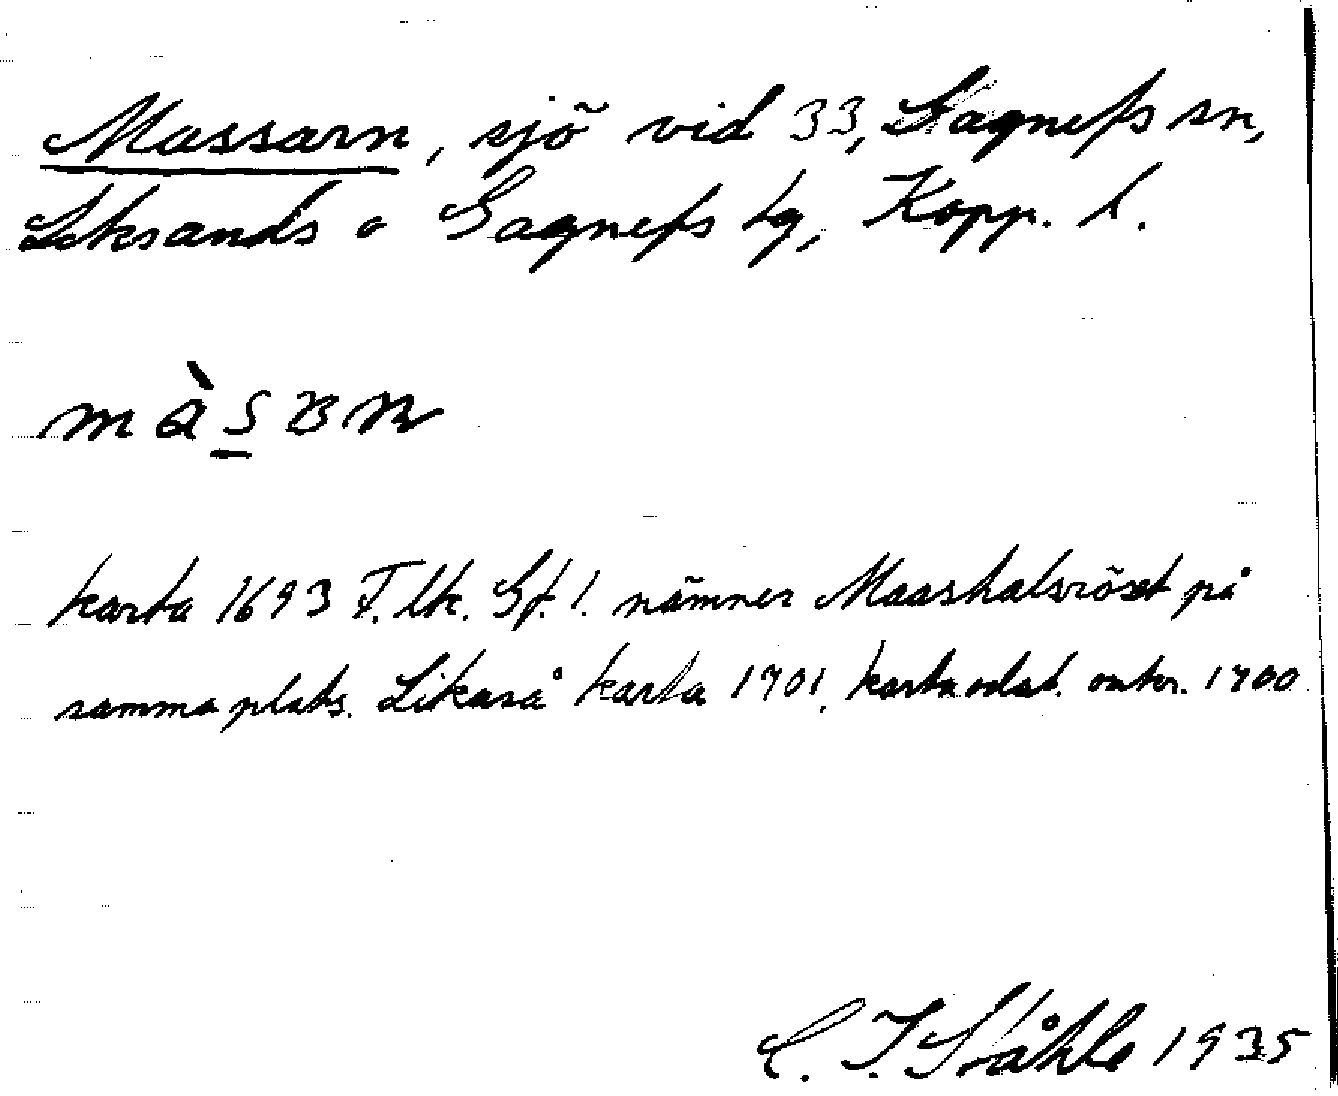 Massarn, sjö vid 33, Gagnefs sn,
Leksands o Gagnefs tg, Kopp. l.
màsɐn
karta 1693 F. lk. Gf. 1. nämner Maashalsröset på
samma plats. Likaså karta 1701, karta odat. omkr. 1700
C. I. Ståhle 1935